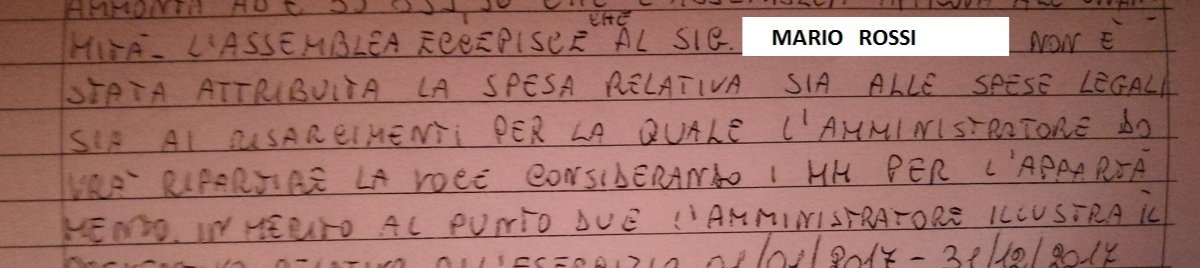 AMMONTA AD € CHE L'ASSEMBLEA
MITÀ - L'ASSEMBLEA ECCEPISCE CHE AL SIG. MARIO ROSSI NON È
STATA ATTRIBUITA LA SPESA RELATIVA SIA ALLE SPESE LEGALI
SIA AI RISARCIMENTI PER LA QUALE L'AMMINISTRATORE DO
VRÀ RIPARTIRE LA VOCE CONSIDERANDO I MM PER L'APPARTA
MENTO. IN MERITO AL PUNTO DUE L'AMMINISTRATORE ILLUSTRA IL
RELATIVO ALL'ESERCIZIO 01/01/2017 - 31/12/2017